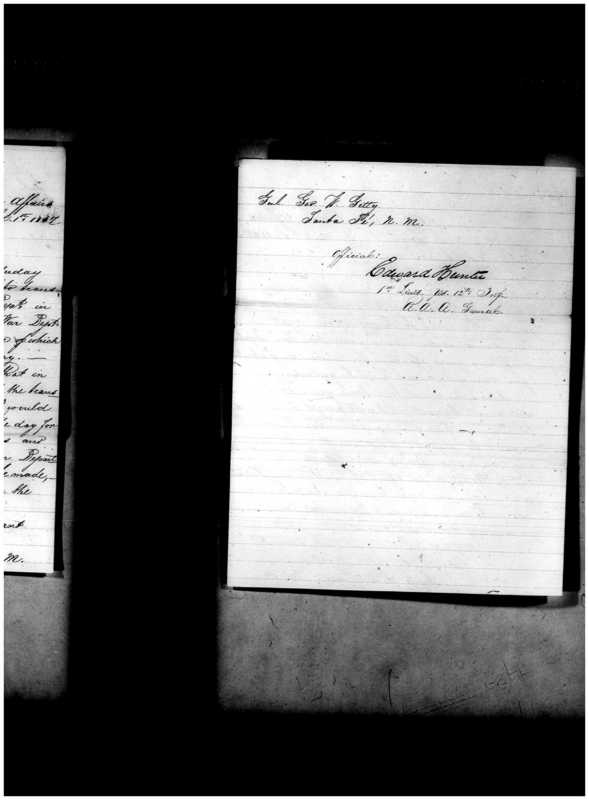 Affairs
1st 1867
to trans
Dept in
War Dept
of which
Dat in
the trans
would
day for
and
Depart
made,
the
M.
Genl Geo. W. Getty
Santa Fé, N. M.
Official:
Edward Hunter
1st Lieut. Adj. 12th Inf.
A. A. A. General